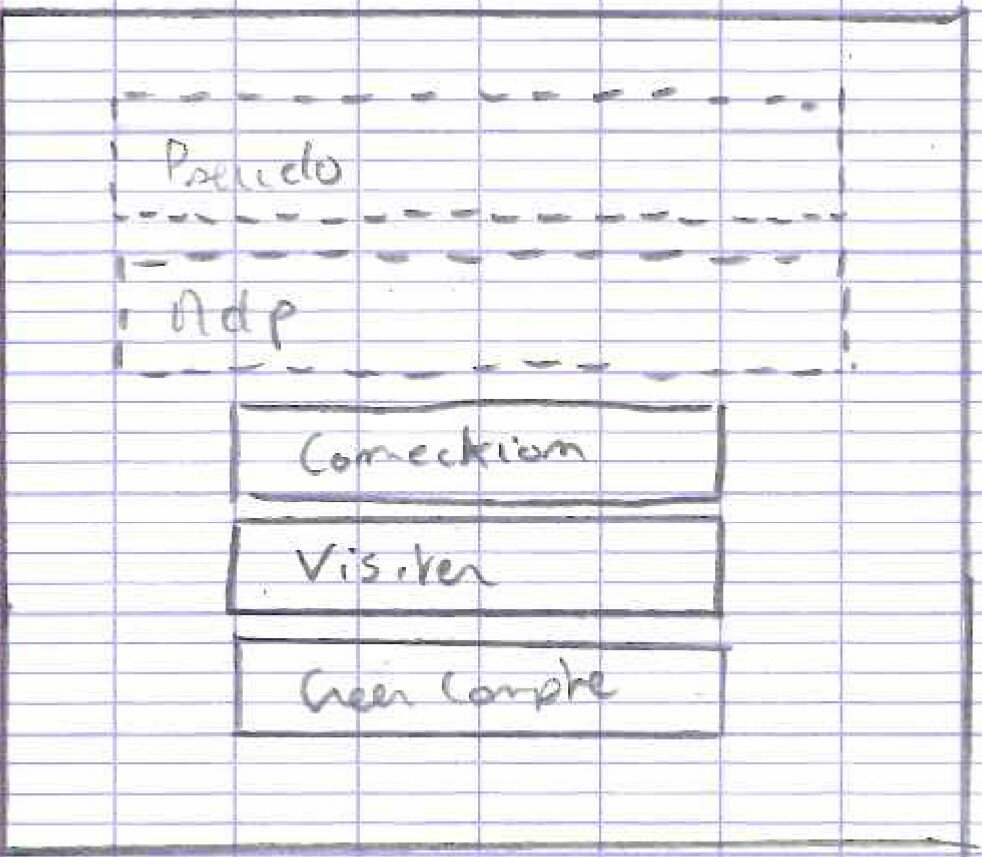 Pseudo
Mdp
Connection
Visiter
Creer Compte